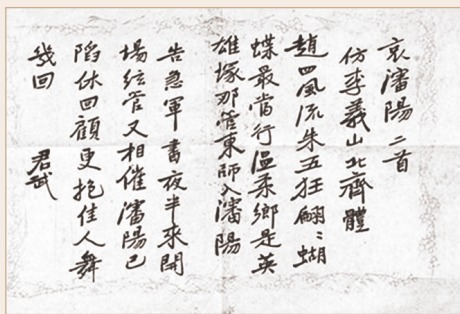 哀瀋陽二首
仿李義山北齊體
趙四風流朱五狂翩〻蝴
蝶最當行温柔鄉是英
雄塚那管東師入瀋陽
告急軍書夜半來開
場絃管又相催瀋陽已
陷休回顧更抱佳人舞
幾回 君武